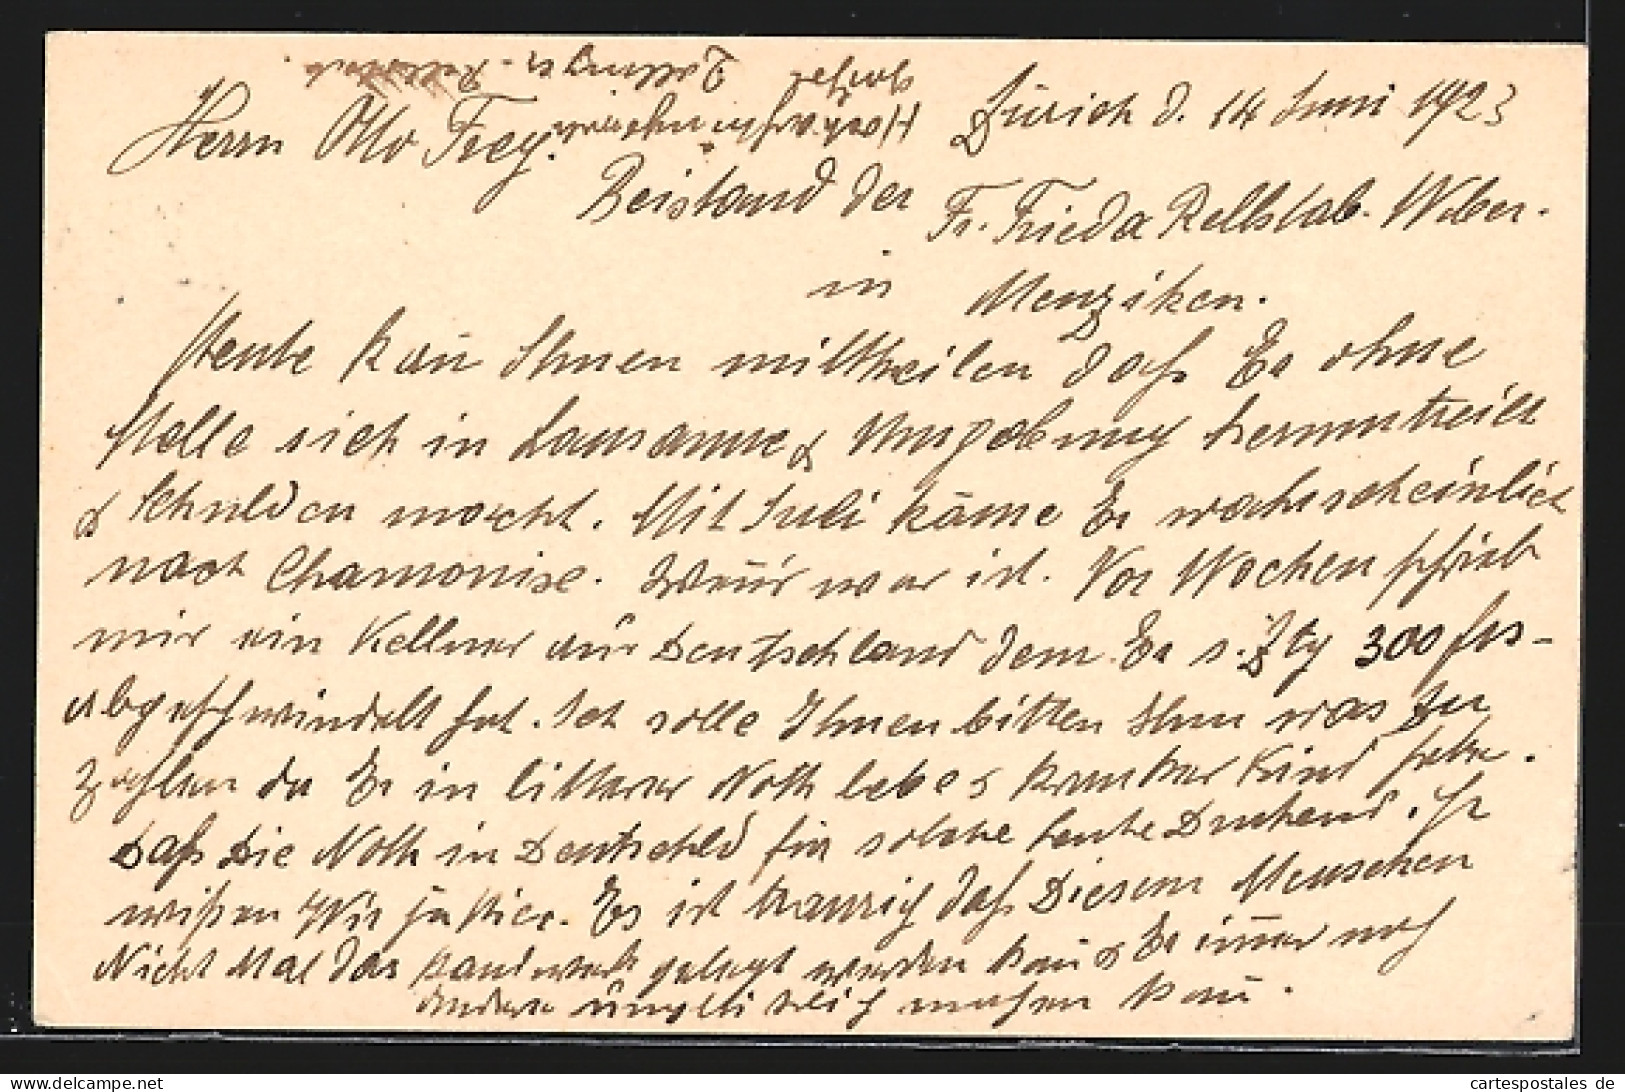 Zürich d. 14 Juni 1923
Herrn Otto Frey.
Beistand der Fr. Frieda Rellstab. Weber.
in Menziken.
Heute kan̅ Ihnen mittheilen daß Er ohne
Stelle sich in Lausanne & Umgebung herumtreibt
& Schulden macht. Mit Juli käme Er wahrscheinlich
nach Chamonise. wen̅'s war ist. Vor Wochen schrieb
mir ein Kellner aus Deutschland dem Er s. Ztg 300 frs-
abgeschwindelt hat. Ich solle Ihnen bitten Ihm was zu
zahlen da Er in bitterer Noth lebe & kranker Kind habe.
Daß Die Noth in Deutschld für solche Leute Druckend. Ist
wißen Wir ja hier. Es ist traurig daß Diesem Menschen
Nicht Mal das Handwerk gelegt werden kan̅ & Er im̅er noch
andere unglücklich machen kan̅.
Hochachtungsvoll
Rellstab
cartespostales de
www.cartespostales.eu